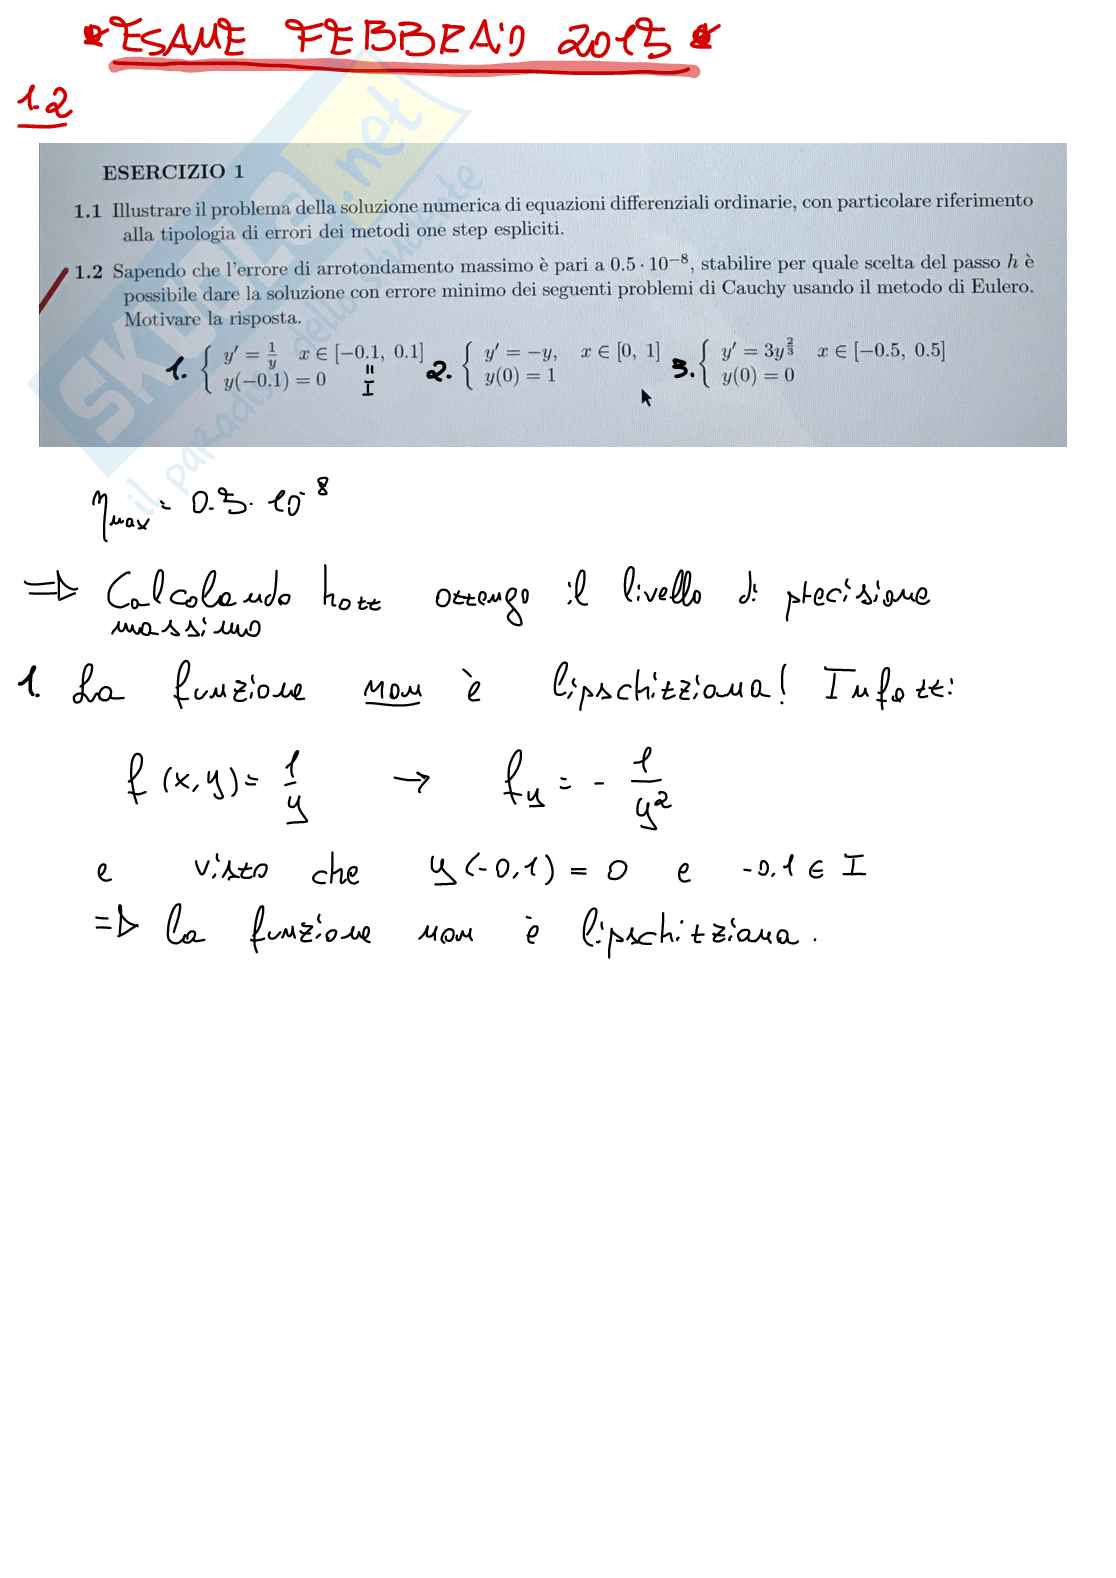 * ESAME FEBBRAIO 2015 *
1.2
ESERCIZIO 1
1.1 Illustrare il problema della soluzione numerica di equazioni differenziali ordinarie, con particolare riferimento
alla tipologia di errori dei metodi one step espliciti.
1.2 Sapendo che l'errore di arrotondamento massimo è pari a 0.5 · 10⁻⁸, stabilire per quale scelta del passo h è
possibile dare la soluzione con errore minimo dei seguenti problemi di Cauchy usando il metodo di Eulero.
Motivare la risposta.
1. { y' = 1/y x ∈ [−0.1, 0.1] 2. { y' = −y, x ∈ [0, 1] 3. { y' = 3y^(2/3) x ∈ [−0.5, 0.5]
y(−0.1) = 0 = I y(0) = 1 y(0) = 0
SKUOLA.net
il paradiso dello studente
η max = 0.5 · 10⁻⁸
=> Calcolando hott ottengo il livello di precisione
massimo
1. La funzione non è lipschitziana! Infatti:
f(x,y) = 1/y → fy = - 1/y²
e visto che y(-0,1) = 0 e -0.1 ∈ I
=> la funzione non è lipschitziana.